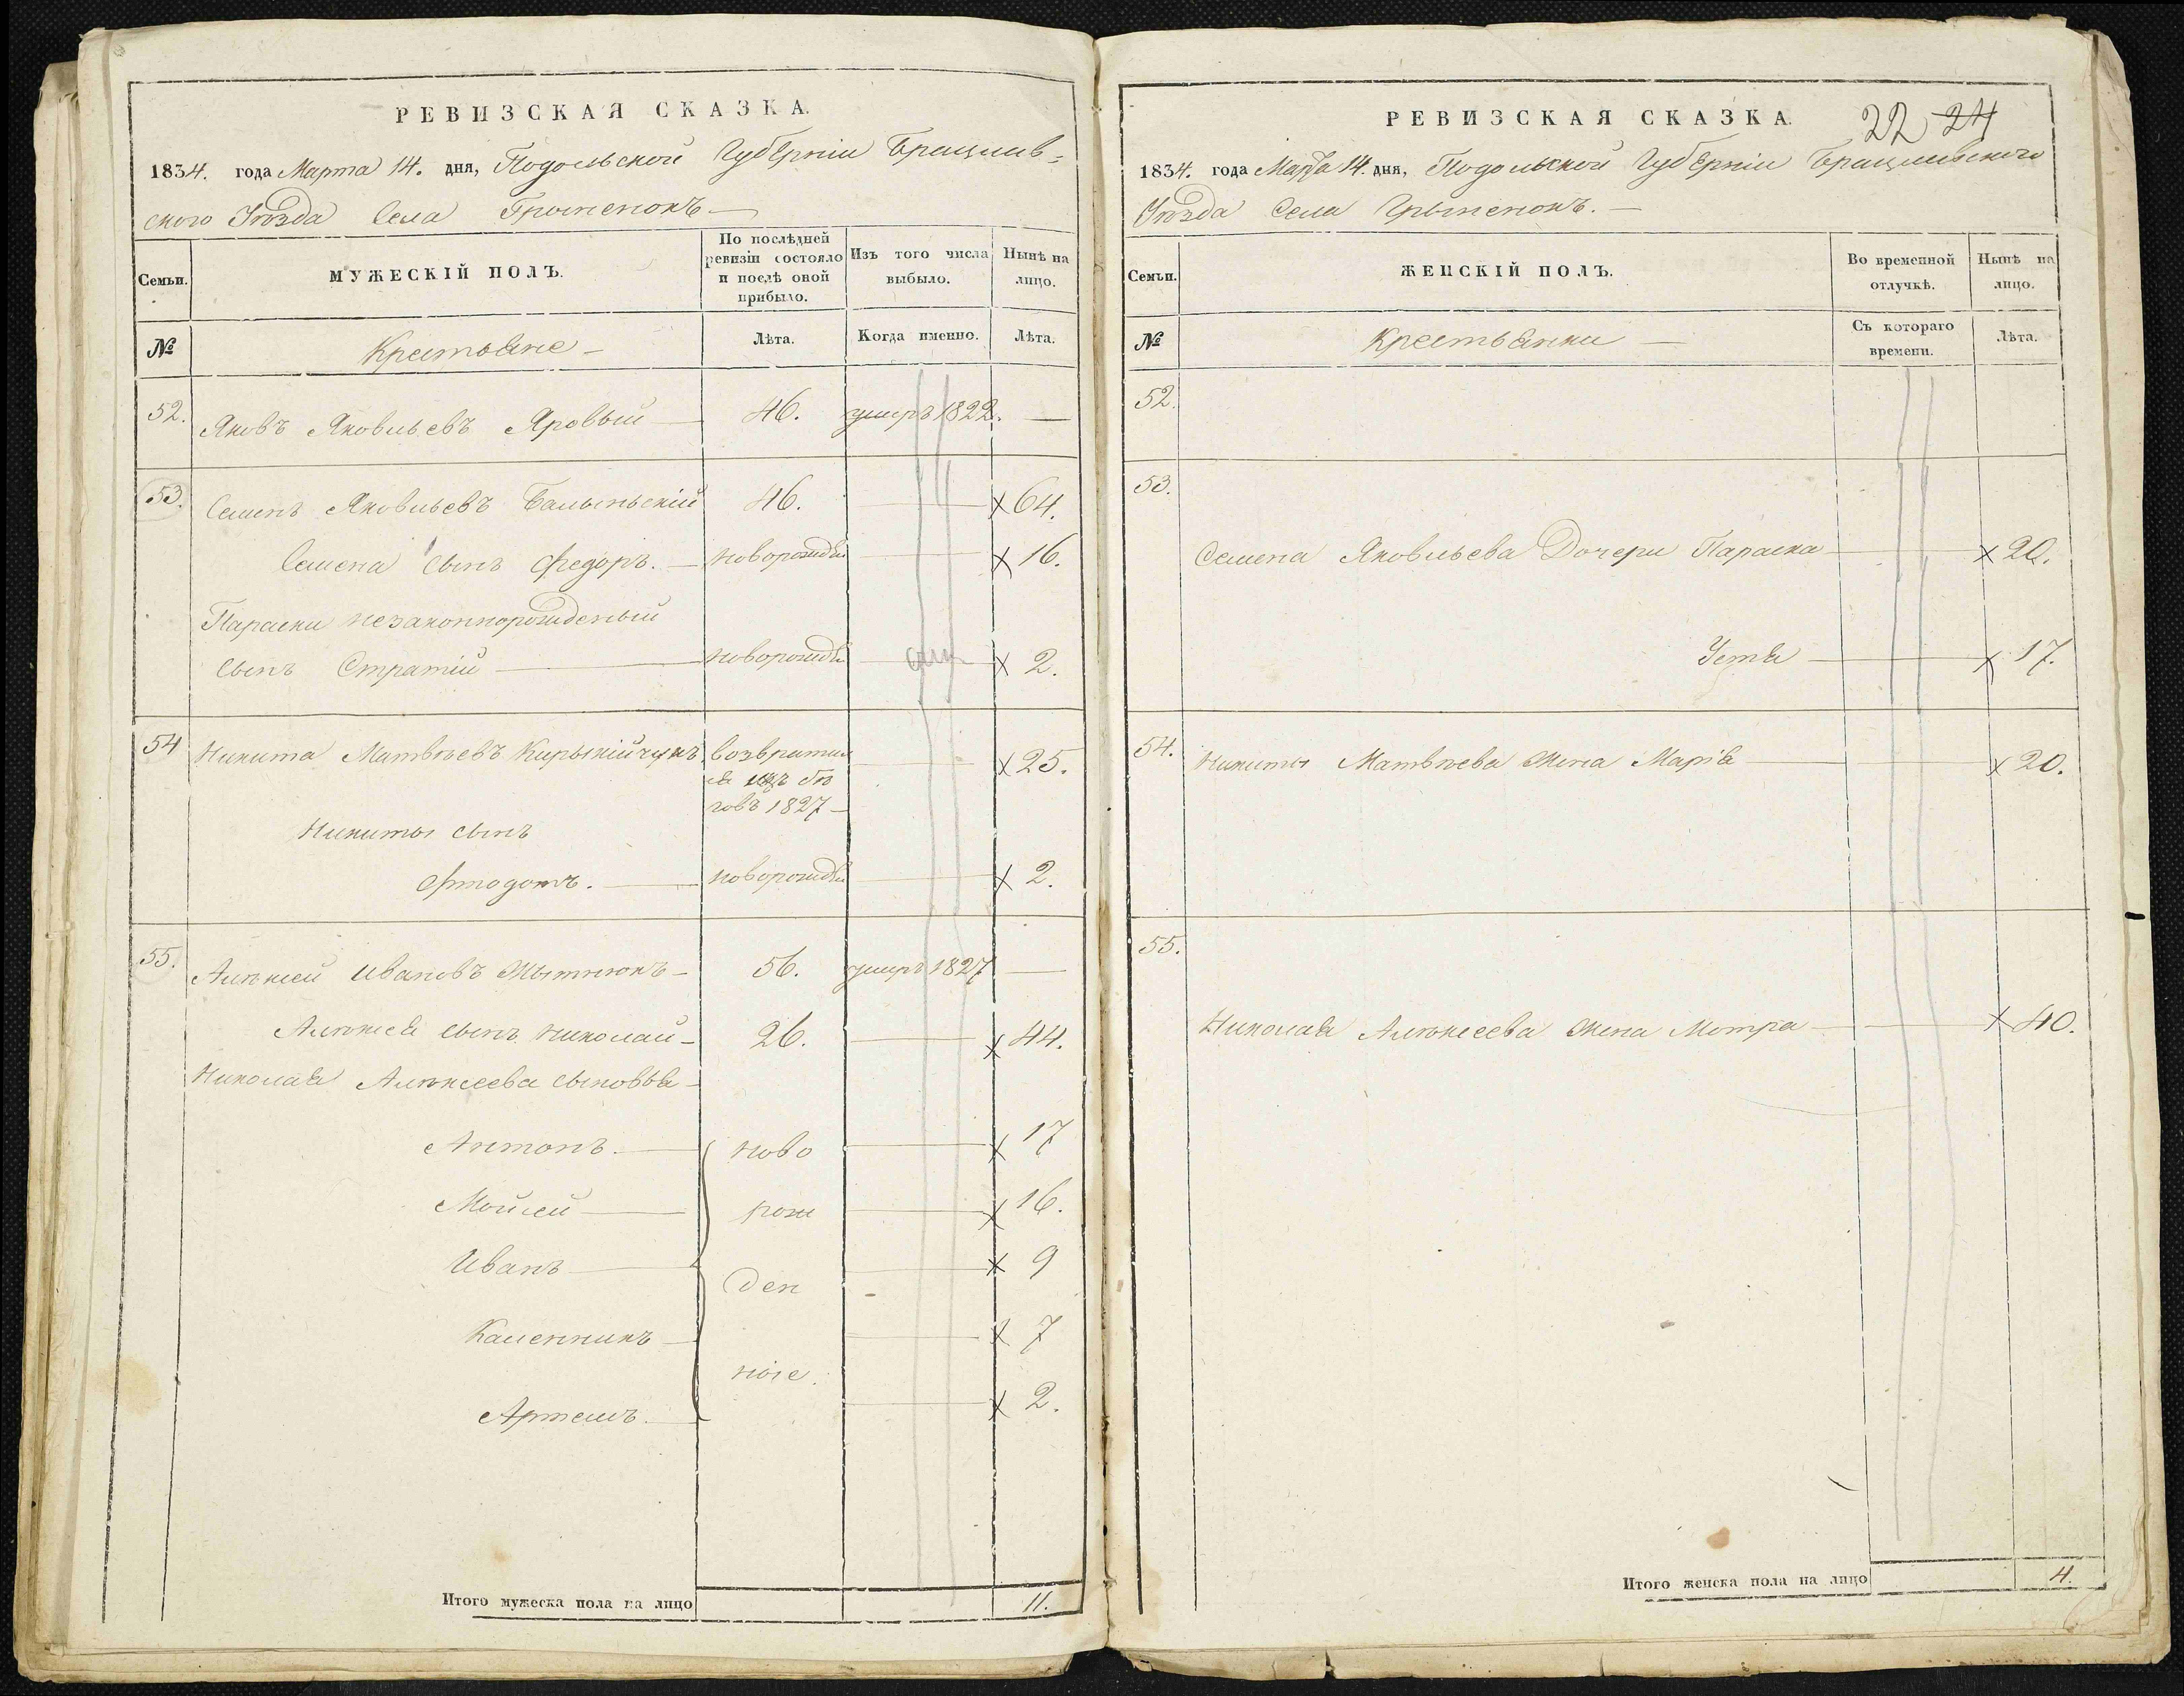 РЕВИЗСКАЯ СКАЗКА.
1834. года Марта 14. дня, Подольской Губерніи Брацлав-
ского Уѣзда Села Грыненокъ
Семьи.
МУЖЕСКІЙ ПОЛЪ.
По послѣдней ревизіи состояло и послѣ оной прибыло.
Изъ того числа выбыло.
Нынѣ на лицо.
№
Крестьяне
Лѣта.
Когда именно.
Лѣта.
52. Яковъ Яковлевъ Яровый 46. умеръ 1822. —
53. Семенъ Яковлевъ 46. x 64.
Семена сынъ Федоръ. — новорожден x 16.
Параски незаконнорожденый
сынъ Стратій новорожден x 2.
54 Никита Матвѣевъ возвратил x 25.
ся изъ бѣ
говъ 1827 —
Никиты сынъ
Фтодотъ. новорожден x 2.
55. Алѣксей Ивановъ Мытнюкъ — 56. умеръ 1827 —
Алѣксея сынъ Николай — 26. x 44.
Николая Алѣксеева сыновья —
Антонъ. ново x 17
Мойсей рож x 16.
Иванъ ден x 9
Каленникъ x 7
ные.
Артемъ. x 2.
Итого мужеска пола на лицо 11.
РЕВИЗСКАЯ СКАЗКА.
22 24
1834. года Марта 14. дня, Подольской Губерніи Брацлавского
Уѣзда Села Грыненокъ. —
Семьи.
ЖЕНСКІЙ ПОЛЪ.
Во временной отлучкѣ.
Нынѣ на лицо.
№
Крестьянки —
Съ котораго времени.
Лѣта.
52.
53.
Семена Яковлева Дочери Параска x 20.
Устя x 17.
54. Никиты Матвѣева жена Марія x 20.
55.
Николая Алѣксеева жена Мотра x 40.
Итого женска пола на лицо 4.